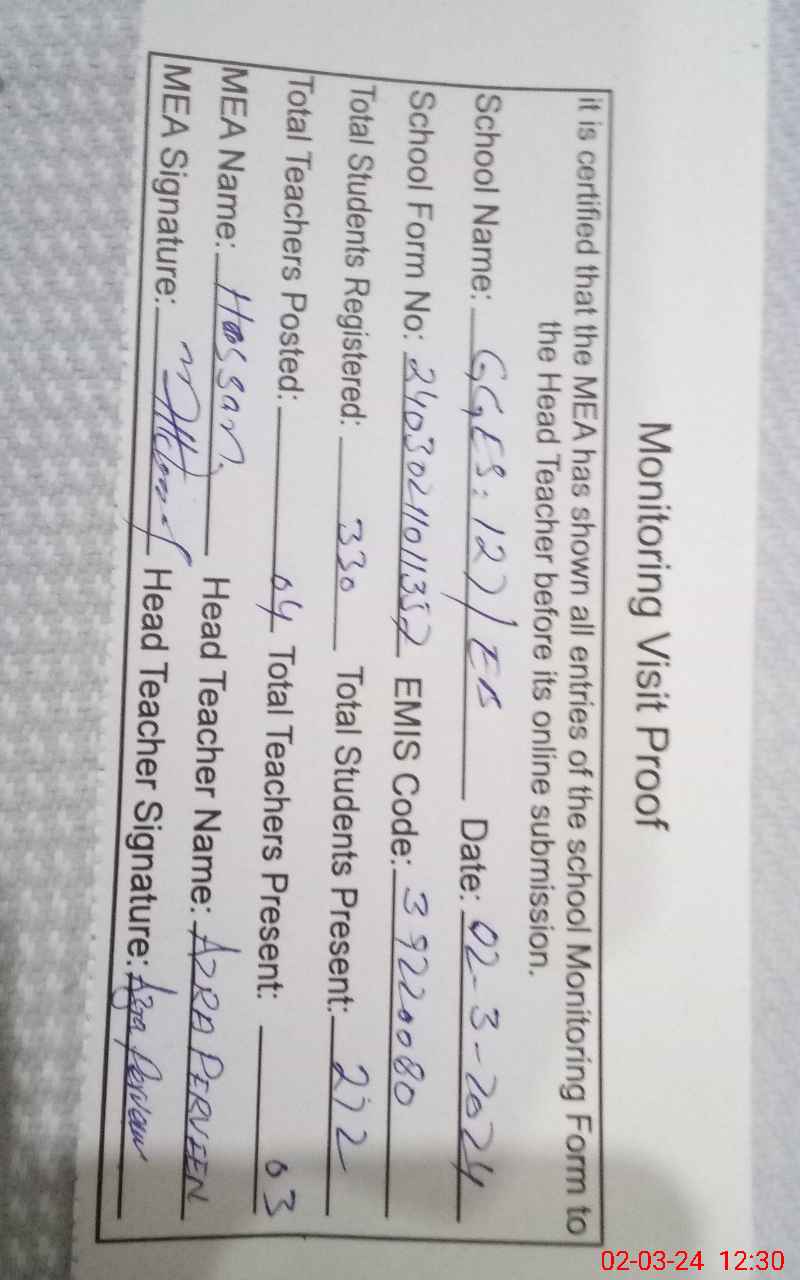 Monitoring Visit Proof
it is certified that the MEA has shown all entries of the school Monitoring Form to
the Head Teacher before its online submission.
School Name: GGES: 127/EB Date: 02-3-2024
School Form No: EMIS Code: 39220080
Total Students Registered: 330 Total Students Present: 272
Total Teachers Posted: 04 Total Teachers Present: 03
MEA Name: Hassan. Head Teacher Name: AZRA PERVEEN
MEA Signature: Head Teacher Signature: Azra Perveen
02-03-24 12:30